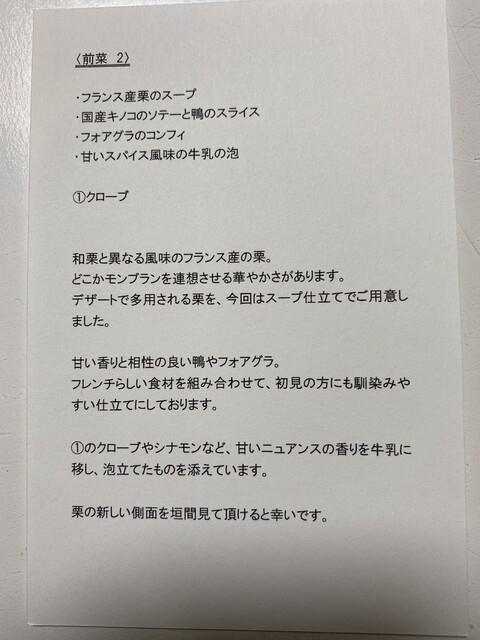 〈前菜 2〉
・フランス産栗のスープ
・国産キノコのソテーと鴨のスライス
・フォアグラのコンフィ
・甘いスパイス風味の牛乳の泡
①クローブ
和栗と異なる風味のフランス産の栗。
どこかモンブランを連想させる華やかさがあります。
デザートで多用される栗を、今回はスープ仕立てでご用意し
ました。
甘い香りと相性の良い鴨やフォアグラ。
フレンチらしい食材を組み合わせて、初見の方にも馴染みや
すい仕立てにしております。
①のクローブやシナモンなど、甘いニュアンスの香りを牛乳に
移し、泡立てたものを添えています。
栗の新しい側面を垣間見て頂けると幸いです。